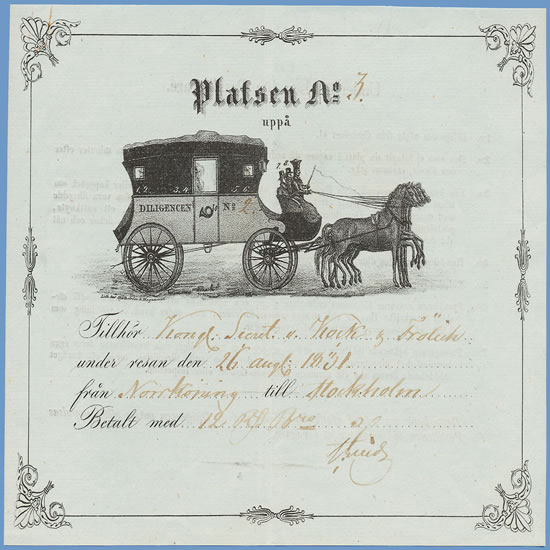 Platsen No 3.
uppå
7 8.
1. 2. 3. 4. 5. 6.
DILIGENCEN No 2
Tillhör Kongl. Secret. v. &
under resan den 26 augt. 1831
från Norrköping till Stockholm
Betalt med 12 Rd Bco